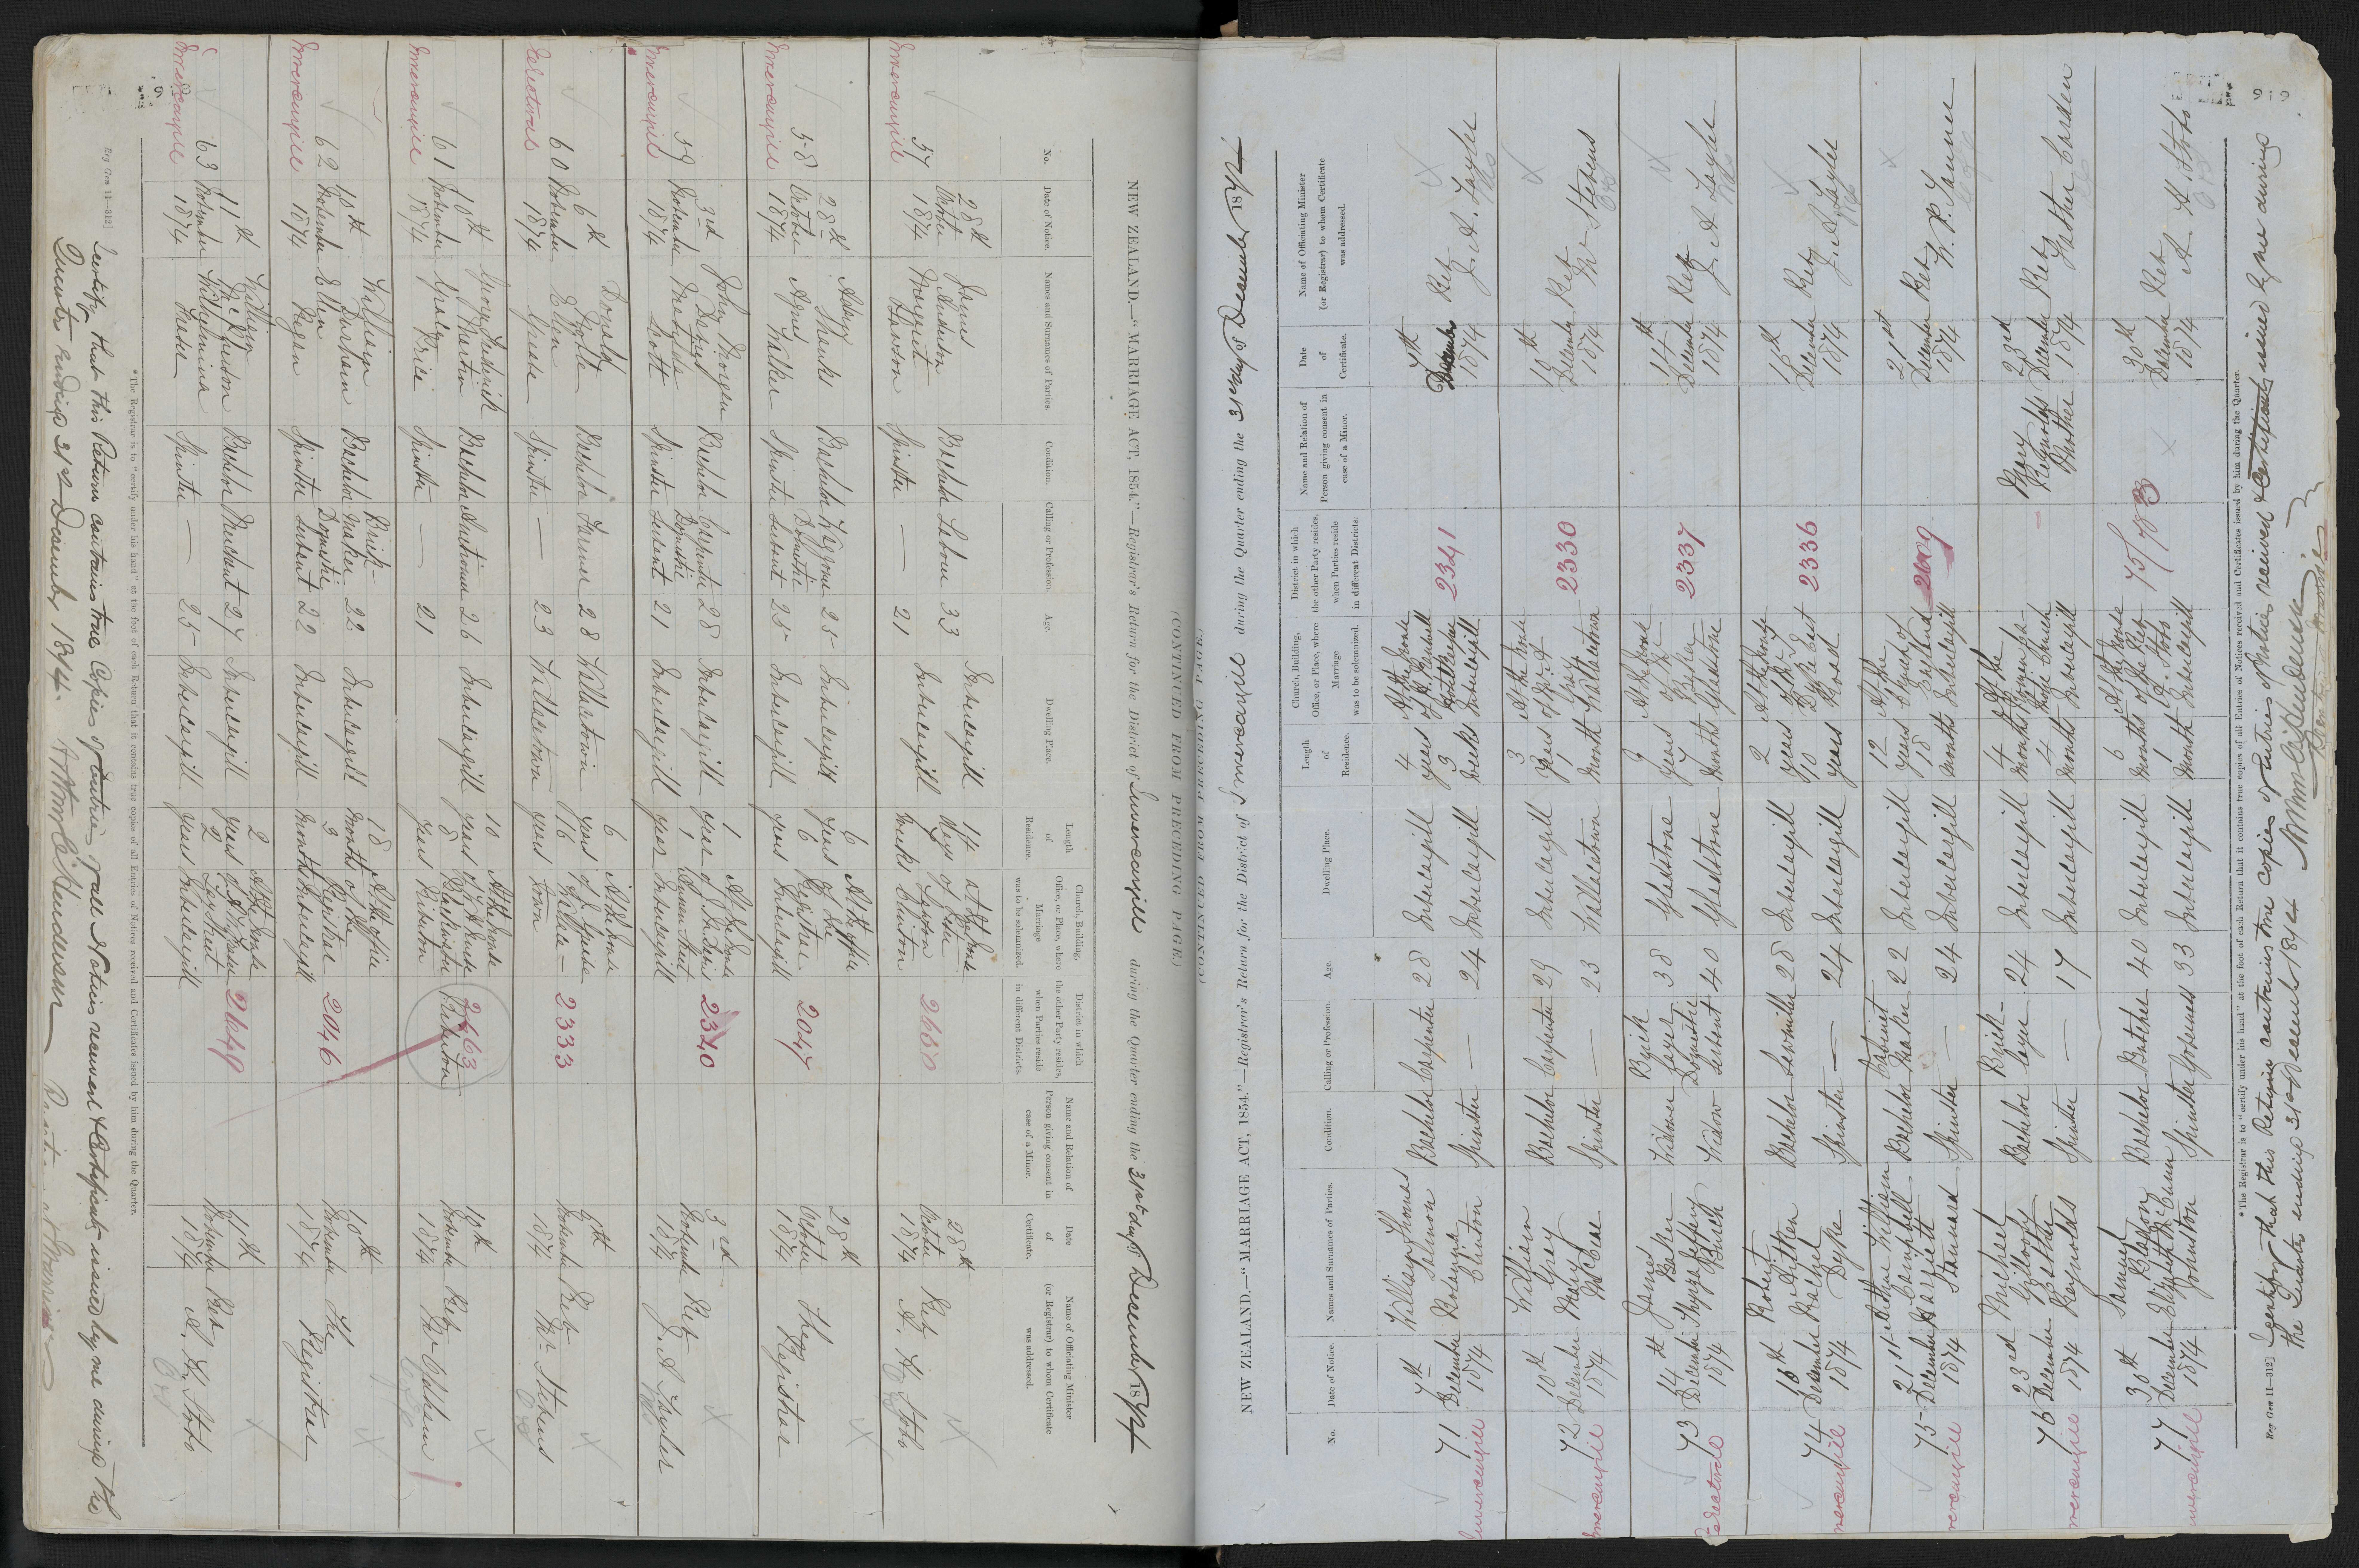 NEW ZEALAND.—"MARRIAGE ACT, 1854."—Registrar's Return for the District of Invercargill during the Quarter ending the 31st day of December 1874
(CONTINUED FROM PRECEDING PAGE)
No.
Date of Notice.
Names and Surnames of Parties.
Condition.
Calling or Profession.
Age.
Dwelling Place.
Length of Residence.
Church, Building, Office, or Place, where Marriage was to be solemnized.
District in which the other Party resides, when Parties reside in different Districts.
Name and Relation of Person giving consent in case of a Minor.
Date of Certificate.
Name of Officiating Minister (or Registrar) to whom Certificate was addressed.
Invercargill
57 28th October 1874
James Anderson Bachelor Labourer 33 Invercargill 14 days
Margaret Lawson Spinster — 21 Invercargill weeks
At the house of Lawson Clinton
28th October 1874 Rev A. H. Stobo
Invercargill
58 28th October 1874
Adam Shanks Bachelor 25 Invercargill 6 years
Agnes Walker Spinster Domestic Servant 25 Invercargill 6 years
At the office of the Registrar Invercargill
2047
28th October 1874 The Registrar
Invercargill
59 3rd November 1874
John Morgan Davies Bachelor Carpenter 28 Invercargill 1 year
Matilda Scott Spinster Domestic Servant 21 Invercargill 1 year
Invercargill
2340
3rd November 1874 Rev J. A. Taylor
60 6th November 1874
Donald Bachelor Farmer 28 Wallacetown 6 years
Ellen Spinster — 23 Wallacetown 16 years
2333
6th November 1874 Rev Mr Stevens
Invercargill
61 10th November 1874
George Frederick Martin Bachelor Auctioneer 26 Invercargill 10 years
Grace Price Spinster — 21 8 years
Riverton
2463
10th November 1874 Rev Mr Oldham
Invercargill
62 10th November 1874
William Durham Bachelor Brick-maker 22 Invercargill 18 months
Ellen Regan Spinster Domestic Servant 22 Invercargill 3 months
At the office of the Registrar Invercargill
2046
10th November 1874 The Registrar
Invercargill
63 11th November 1874
William Bachelor Merchant 27 Invercargill 2 years
Wilhelmina Spinster — 25 Invercargill 2 years
Tay Street Invercargill
11th November 1874 Rev A. H. Stobo
*The Registrar is to "certify under his hand" at the foot of each Return that it contains true copies of all Entries of Notices received and Certificates issued by him during the Quarter.
Reg Gen 11—312]
I certify that this Return contains true Copies of Entries of all Notices received & Certificates issued by me during the
Quarter ending 31st December 1874.
NEW ZEALAND.—"MARRIAGE ACT, 1854."—Registrar's Return for the District of Invercargill during the Quarter ending the 31st day of December 1874
(CONTINUED FROM PRECEDING PAGE)
No.
Date of Notice.
Names and Surnames of Parties.
Condition.
Calling or Profession.
Age.
Dwelling Place.
Length of Residence.
Church, Building, Office, or Place, where Marriage was to be solemnized.
District in which the other Party resides, when Parties reside in different Districts.
Name and Relation of Person giving consent in case of a Minor.
Date of Certificate.
Name of Officiating Minister (or Registrar) to whom Certificate was addressed.
Invercargill
71 7th December 1874
William Thomas Salmon Bachelor Carpenter 28 Invercargill 4 years
Rosanna Clinton Spinster — 24 Invercargill 3 weeks
Invercargill
2341
7th December 1874 Rev J. A. Taylor
Invercargill
72 10th December 1874
William Gray Bachelor Carpenter 29 Invercargill 3 years
Mary McCrae Spinster — 23 Wallacetown 1 month
At the house of Mr Gray Wallacetown
2330
10th December 1874 Rev Mr Stevens
73 14th December 1874
James Baker Widower Brick layer 38 Gladstone years
Widow Domestic Servant 40 Gladstone 7 months
At the house of Mr Baker Gladstone
2337
14th December 1874 Rev J. A. Taylor
Invercargill
74 16th December 1874
Robert Aitken Bachelor Sawmiller 28 Invercargill 2 years
Rachel Dyke Spinster — 24 Invercargill 10 years
At the house of Mr Dyke East Road
2336
16th December 1874 Rev J. A. Taylor
Invercargill
75 21st December 1874
Arthur William Campbell Bachelor Cabinet Maker 22 Invercargill 12 years
Harriett Stannard Spinster — 24 Invercargill 18 months
At the Church of England Invercargill
21st December 1874 Rev W. P. Tanner
Invercargill
76 23rd December 1874
Michael Gilloon Bachelor Brick-layer 24 Invercargill 4 months
Esther Reynolds Spinster — 17 Invercargill 4 months
At the Roman Ca- tholic Church Invercargill
Mary Reynolds Mother
23rd December 1874 Rev Father Carden
Invercargill
77 30th December 1874
Samuel Blackson Bachelor Butcher 40 Invercargill 6 months
Elizabeth McCunn Johnston Spinster Governess 33 Invercargill 1 month
At the house of the Rev A. Stobo Invercargill
75/783
30th December 1874 Rev A. H. Stobo
*The Registrar is to "certify under his hand" at the foot of each Return that it contains true copies of all Entries of Notices received and Certificates issued by him during the Quarter.
Reg Gen 11—312]
I certify that this Return contains true copies of entries of Notices received & Certificates issued by me during
the Quarter ending 31st December 1874
919